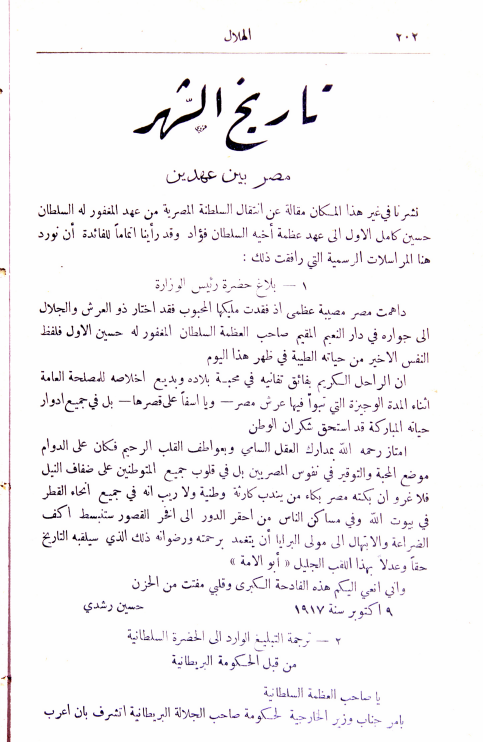 ٢٠٢
الهلال
تاريخ الشهر
مصر بين عهدين
نشرنا في غير هذا المكان مقالة عن انتقال السلطنة المصرية من عهد المغفور له السلطان
حسين كامل الاول الى عهد عظمة أخيه السلطان فؤاد وقد رأينا اتماماً للفائدة أن نورد
هنا المراسلات الرسمية التي رافقت ذلك :
١ — بلاغ حضرة رئيس الوزارة
داهمت مصر مصيبة عظمى اذ فقدت مليكها المحبوب فقد اختار ذو العرش والجلال
الى جواره في دار النعيم المقيم صاحب العظمة السلطان المغفور له حسين الاول فلفظ
النفس الاخير من حياته الطيبة في ظهر هذا اليوم
ان الراحل الكريم بفائق تفانيه في محبة بلاده وبديع اخلاصه للمصلحة العامة
اثناء المدة الوجيزة التي تبوأ فيها عرش مصر — ويا اسفا على قصرها — بل في جميع ادوار
حياته المباركة قد استحق شكران الوطن
امتاز رحمه الله بمدارك العقل السامي وبعواطف القلب الرحيم فكان على الدوام
موضع المحبة والتوقير في نفوس المصريين بل في قلوب جميع المتوطنين على ضفاف النيل
فلا غرو ان بكته مصر بكاء من يندب كارثة وطنية ولا ريب انه في جميع انحاء القطر
في بيوت الله وفي مساكن الناس من احقر الدور الى افخر القصور ستنبسط اكف
الضراعة والابتهال الى مولى البرايا أن يتغمد برحمته ورضوانه ذلك الذي سيلقبه التاريخ
حقاً وعدلاً بهذا اللقب الجليل « أبو الامة »
واني انعي اليكم هذه الفادحة الكبرى وقلبي مفتت من الحزن
٩ اكتوبر سنة ١٩١٧ حسين رشدي
٢ — ترجمة التبليغ الوارد الى الحضرة السلطانية
من قبل الحكومة البريطانية
يا صاحب العظمة السلطانية
بامر جناب وزير الخارجية لحكومة صاحب الجلالة البريطانية اتشرف بان اعرب